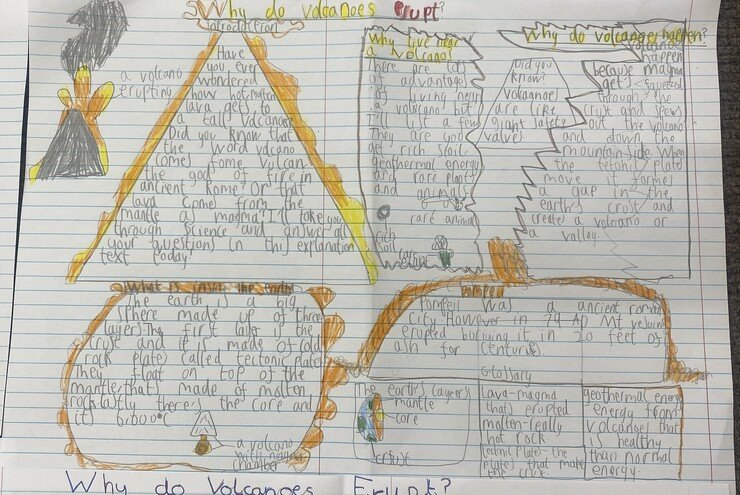 Why do volcanoes erupt?
introduction
a volcano
erupting
Have
you ever
wondered
how hot molten
lava gets to
a tall volcano?
Did you know that
the word volcano
comes fome Vulcan
the god of fire in
ancient Rome? Or that
lava come from the
mantle as magma? I'll take you
through science and answer all
your questions in this explanation
text today!
Why live near
a volcano?
There are lots
of advantages
of living near
a volcano but
I'll list a few
They are good
get rich soil,
geothermal energy
and rare plants
and animals
rare animal
rich
soil
Why do volcanoes happen?
Did you
know?
Volcanoes
are like
giant safety
valves
Volcanoes
happen
because magma
gets squeezed
through the
crust and spews
out the volcano
and down the
mountain side. When
the tetonic plate
move it forms
a gap in the
earth's crust and
creates a volcano or
a valley.
What is inside the earth
The earth is a big
sphere made up of three
layers. The first layer is the
crust and it is made of cold
rock plates called tectonic plates
They float on top of the
mantle that's made of molten
rock lastly there is the core and
its 6,000°C
a volcano
with magma
chamber
Pompeii
Pompeii was a ancient roman
city. However in 79 AD Mt vesuvius
erupted buriying it in 20 feet of
ash for centuries
Glossary
The earth's layers
mantle
core
crust
Lava-magma
that's erupted
molten-really
hot rock
tectonic plates-the
plates that make
the crust
geothermal energy
energy from
volcanoes that
is healthy
than normal
energy.
Why do Volcanoes Erupt?